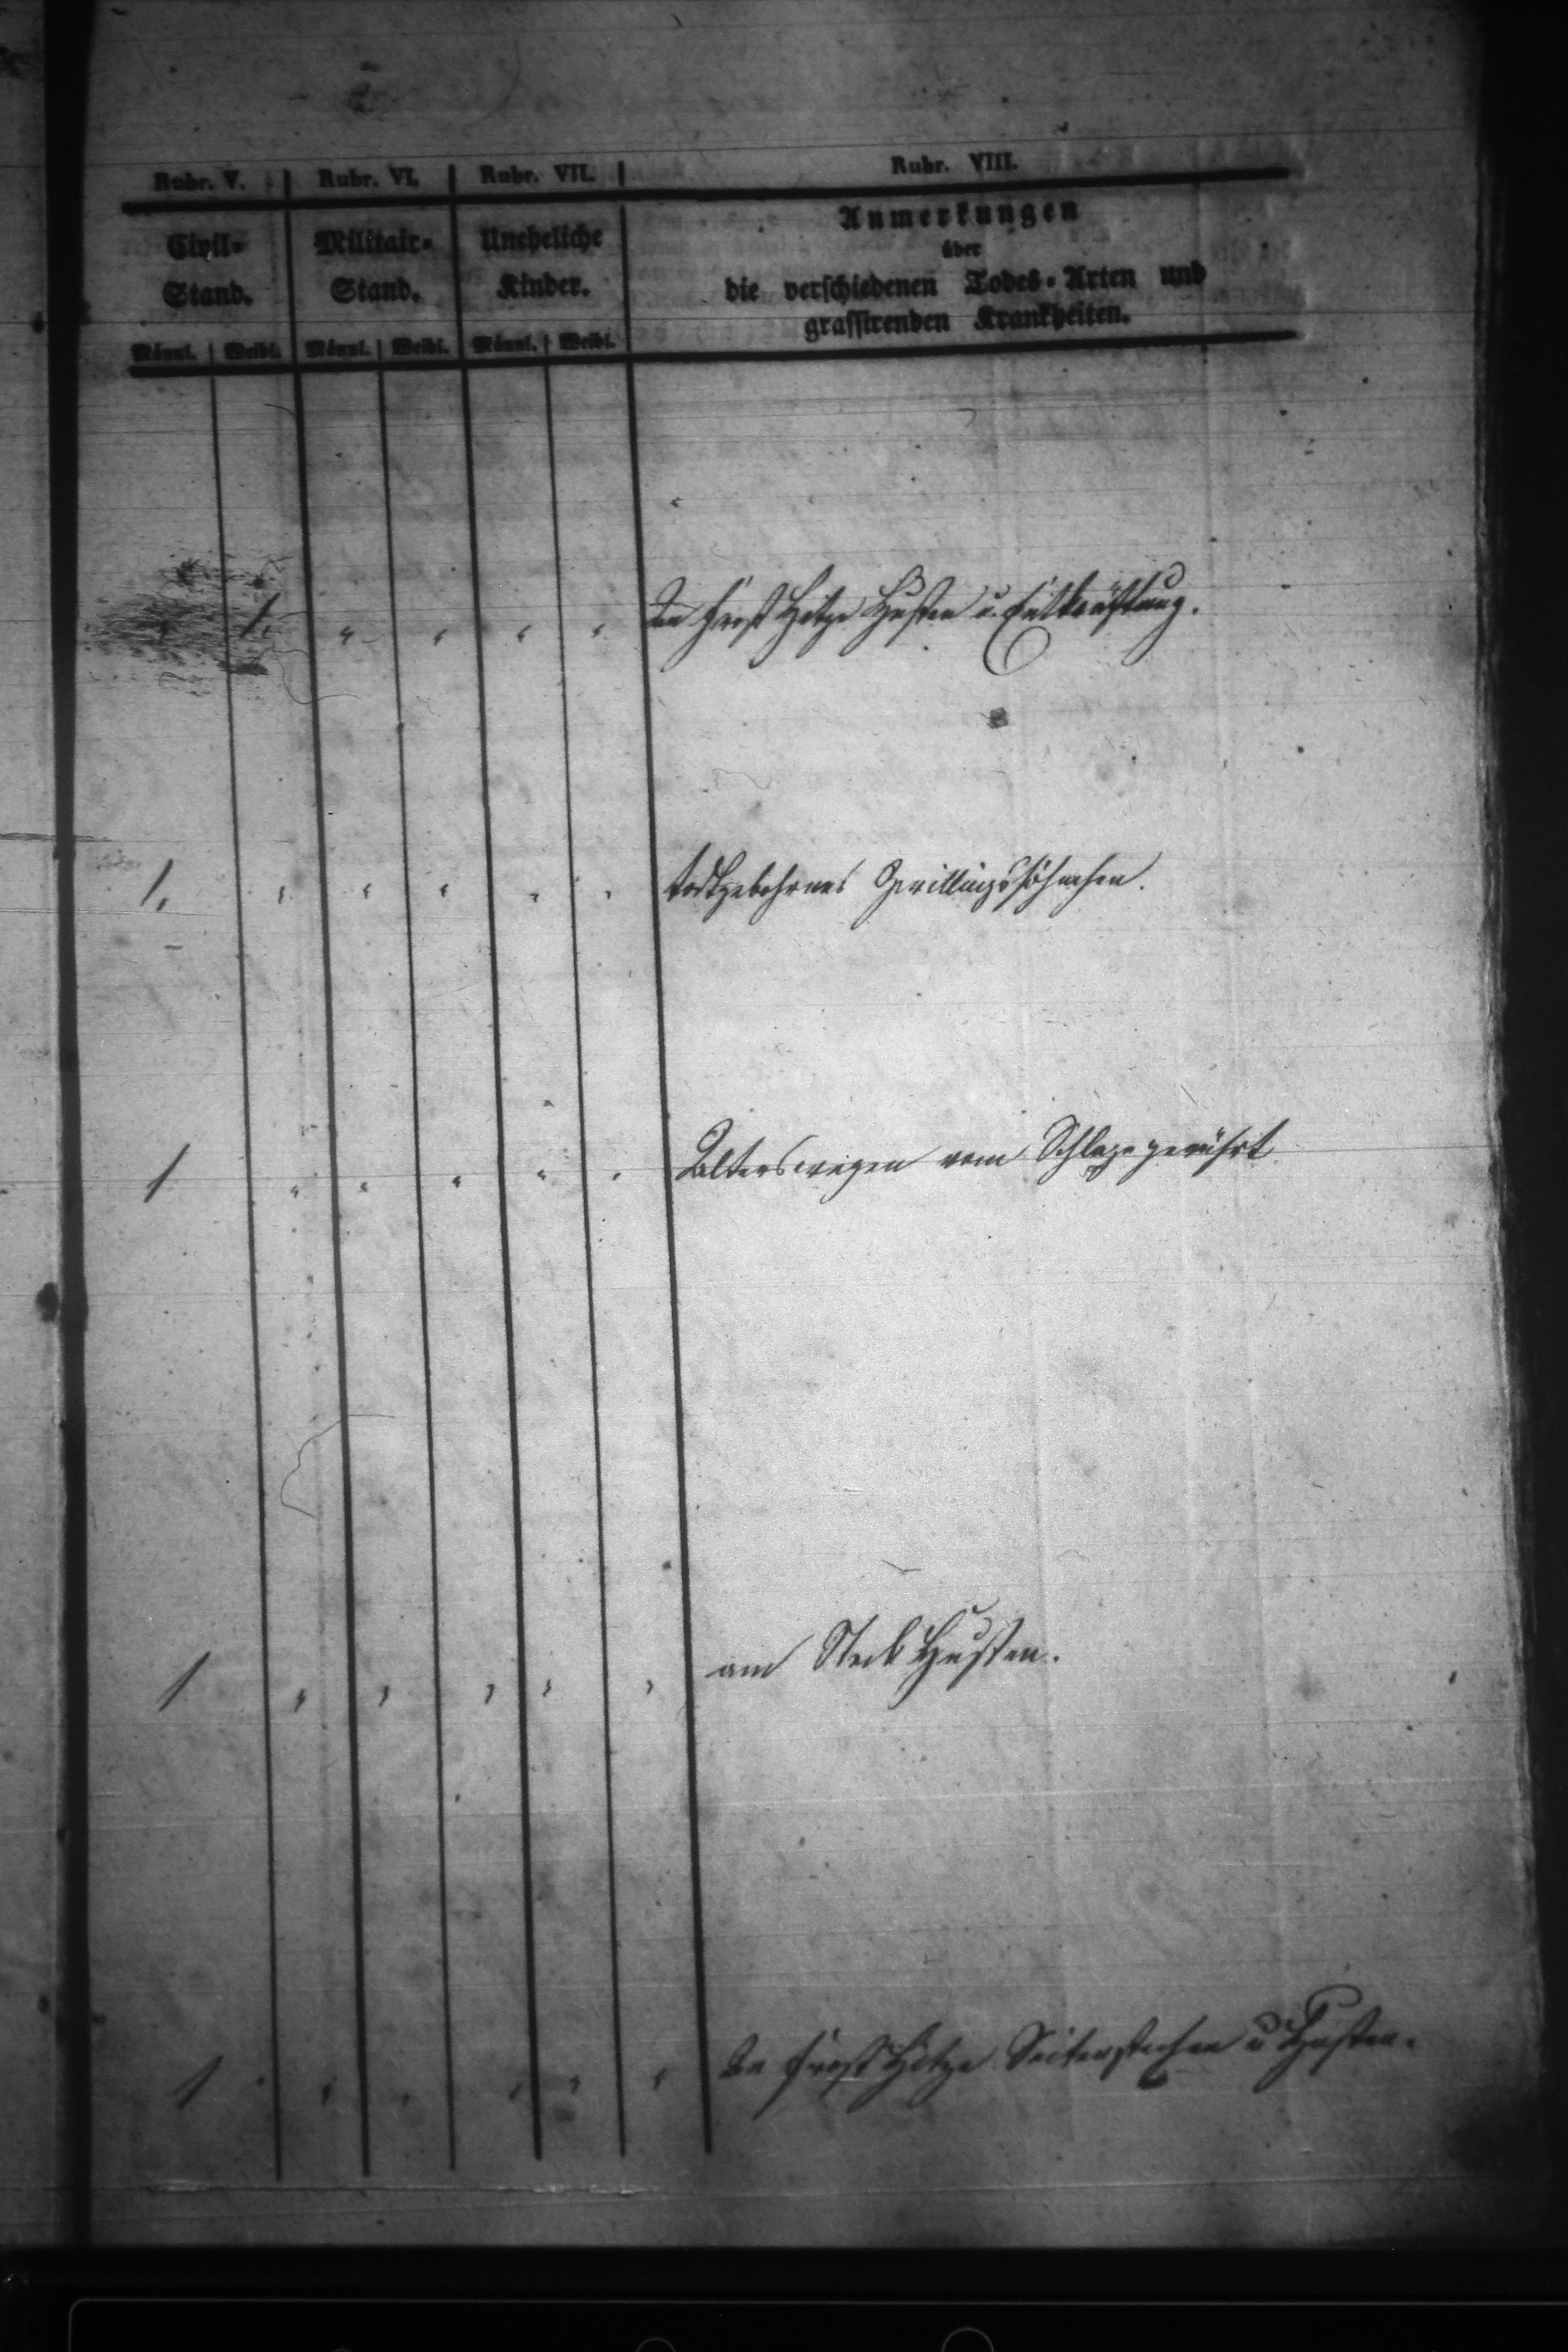 Rubr. V. Rubr. VI. Rubr. VII. Rubr. VIII.
Civil-
Stand.
Militair-
Stand.
Uneheliche
Kinder.
Anmerkungen
über
die verschiedenen Todes-Arten und
grassirenden Krankheiten.
Männl. Weibl. Männl. Weibl. Männl. Weibl.
1. " " " " An Frost Hitze Husten u. Entkräftung.
1. " " " " " todtgebohrnes Zwillingssöhnchen.
1 " " " " " Alterswegen vom Schlage gerührt
1 " " " " " am Steck Husten.
1 " " " " " An Frost Hitze Seitenstechen u Husten.